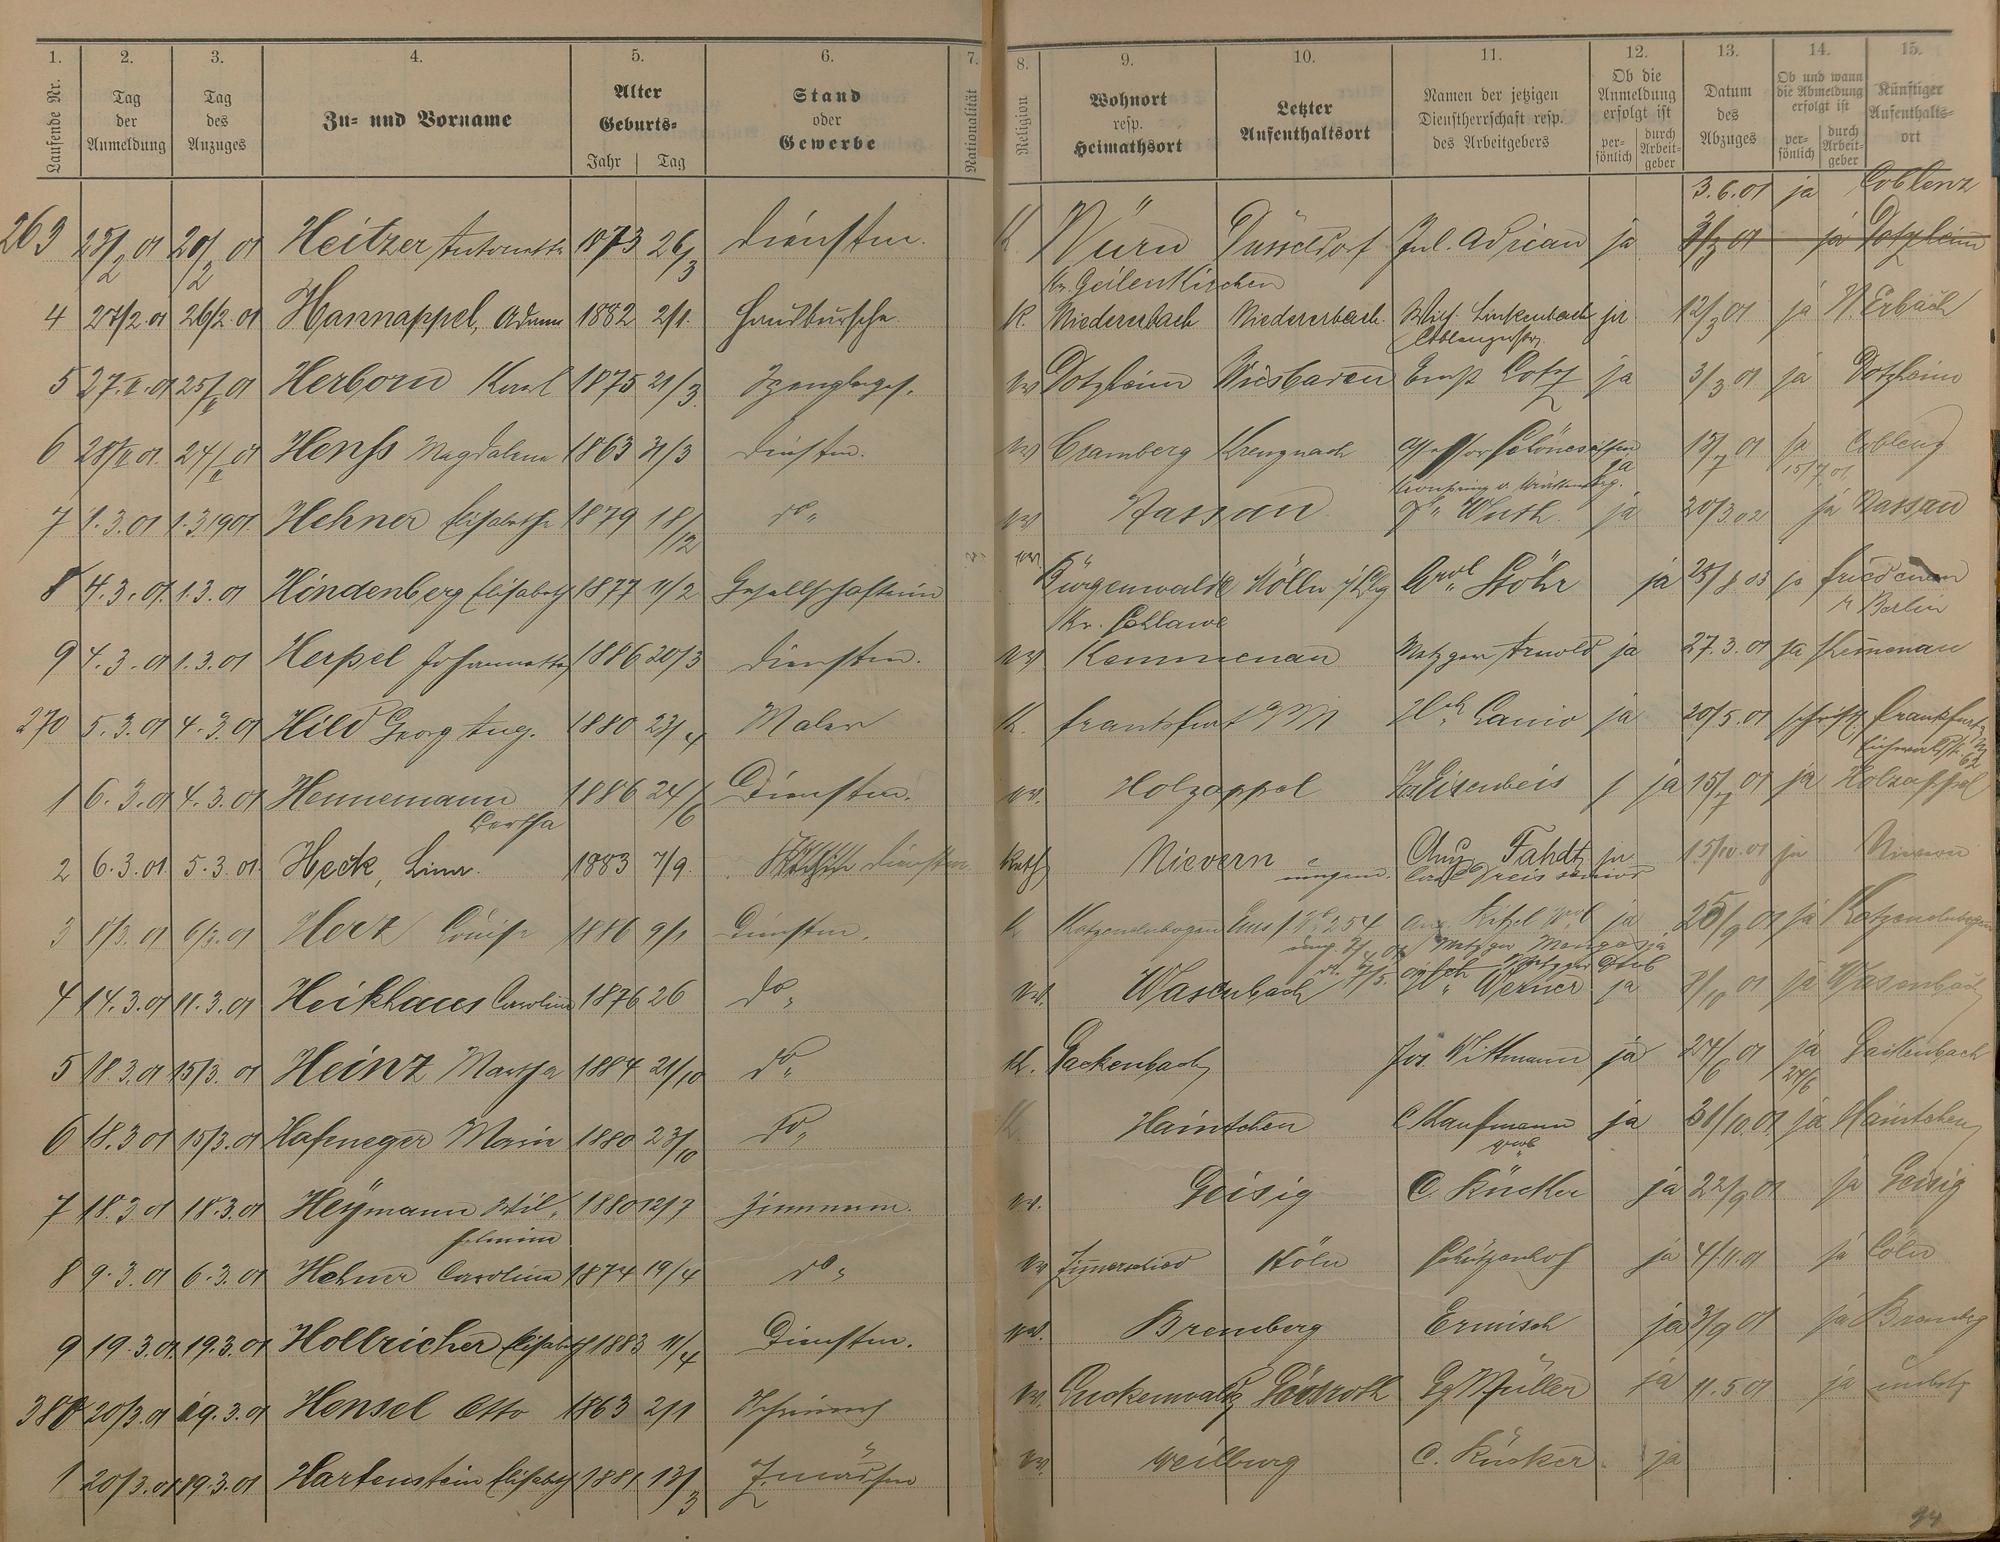 1. 2. 3. 4. 5. 6. 7. 8. 9. 10. 11. 12. 13. 14. 15.
Laufende Nr.
Tag der Anmeldung
Tag des Anzuges
Zu- und Vorname
Alter Geburts- Jahr Tag
Stand oder Gewerbe
Nationalität
Religion
Wohnort resp. Heimathsort
Letzter Aufenthaltsort
Namen der jetzigen Dienstherrschaft resp. des Arbeitgebers
Ob die Anmeldung erfolgt ist persönlich durch Arbeitgeber
Datum des Abzuges
Ob und wann die Abmeldung erfolgt ist persönlich durch Arbeitgeber
Künftiger Aufenthaltsort
3.6.01 ja Coblenz
263 28/2 01 20/2 01 Heitzer Antonetta 1873 26/3 Dienstm. K. Würn Düsseldorf Jul. Adrian ja 3/3 01 ja Dotzheim
Kr. Geilenkirchen
4 27/2.01 26/2.01 Hannappel, Adam 1882 2/1. Hausbursche K. Niedererbach Niedererbach. Wilh. Linkenbach ja 12/3 01 ja N. Erbach
Coblenzerstr.
5 27.II.01 25/II 01 Herborn Karl 1875 21/3. Spenglerges. ev Dotzheim Wiesbaden Ernst Lotz ja 3/3 01 ja Dotzheim
6 28/II 01. 24/II 01 Henss Magdalena 1863 31/3 Dienstm. ev Cramberg Kreuznach Assessor ja 15/7 01 ja Coblenz
15/7.01
Kronprinz v. Württemberg.
7 1.3.01 1.3.1901. Hehner Elisabetha 1879 18/12 do " ev Nassau Wuth ja 20/3.02 ja Nassau
8 4.3.01. 1.3.01 Hindenberg Elisabeth 1877 11/2 Gesellschafterin ev. Rügenwalde Mölln Stöhr ja 25/8 03 ja Friedenau
Kr. Schlawe b Berlin
9 4.3.01 1.3.01 Herpel Johannetta 1886 20/3 Dienstm. ev Kemmenau Metzger Arnold ja 27.3.01 ja Kemmenau
270 5.3.01 4.3.01 Hild Georg Aug. 1880 23/4 Maler K. Frankfurt a/M Hch. Canio ja 20/5.01 schriftl. Frankfurt a/M
62
1 6.3.01 4.3.01 Hennemann 1886 24/6 Dienstm. ev. Holzappel Eisenbeis ja 15/7 01 ja Holzappel
Bertha
2 6.3.01 5.3.01. Heck, Lina. 1883 7/9. Dienstm. Kath Nievern Aug. Fahdt ja 15/10.01 ja Nievern
Carl Dreis senior
3 8/3.01 6/3.01 Herz Louise 1886 9/1 Dienstm. K Katzenelnbogen Ems ja 25/9 01 ja Katzenelnbogen
Metzger
4 14.3.01 11.3.01 Heikhaus Carolina 1876 26 do " ev. Wasenbach Werner ja 8/10 01 ja Wasenbach
5 18.3.01 15/3.01 Heinz Martha 1884 21/10 do " K. Gackenbach Jos. Wittmann ja 24/6 01 ja Gackenbach
24/6
6 18.3 01 15/3.01 Hafeneger Maria 1880 23/10 do " K Haintchen C Kaufmann ja 31/10.01. ja Haintchen
7 18.3 01 18.3.01 Heymann Wil- 1880 12/7 Zimmerm. ev. Geisig C. Rücker ja 22/9 01 ja Geisig
helmine
8 9.3.01 6.3.01 Hehner Carolina 1874 19/4 do " ev Zimmerschied Köln Schützenhof ja 4/11.01 ja Cöln
9 19.3.01. 19.3.01 Hollricher Elisabeth 1883 11/4 Dienstm. ev. Bremberg Ermisch ja 3/9 01 ja Bremberg
380 20/3.01 19.3.01 Hensel Otto 1863 2/1 Schreiner ev. Müller ja 11.5 01 ja unbek.
1 20/3.01 19.3.01 Hartenstein Elisabeth 1881 13/3 Z.mädchen ev. Weilburg C. Rücker. ja
94